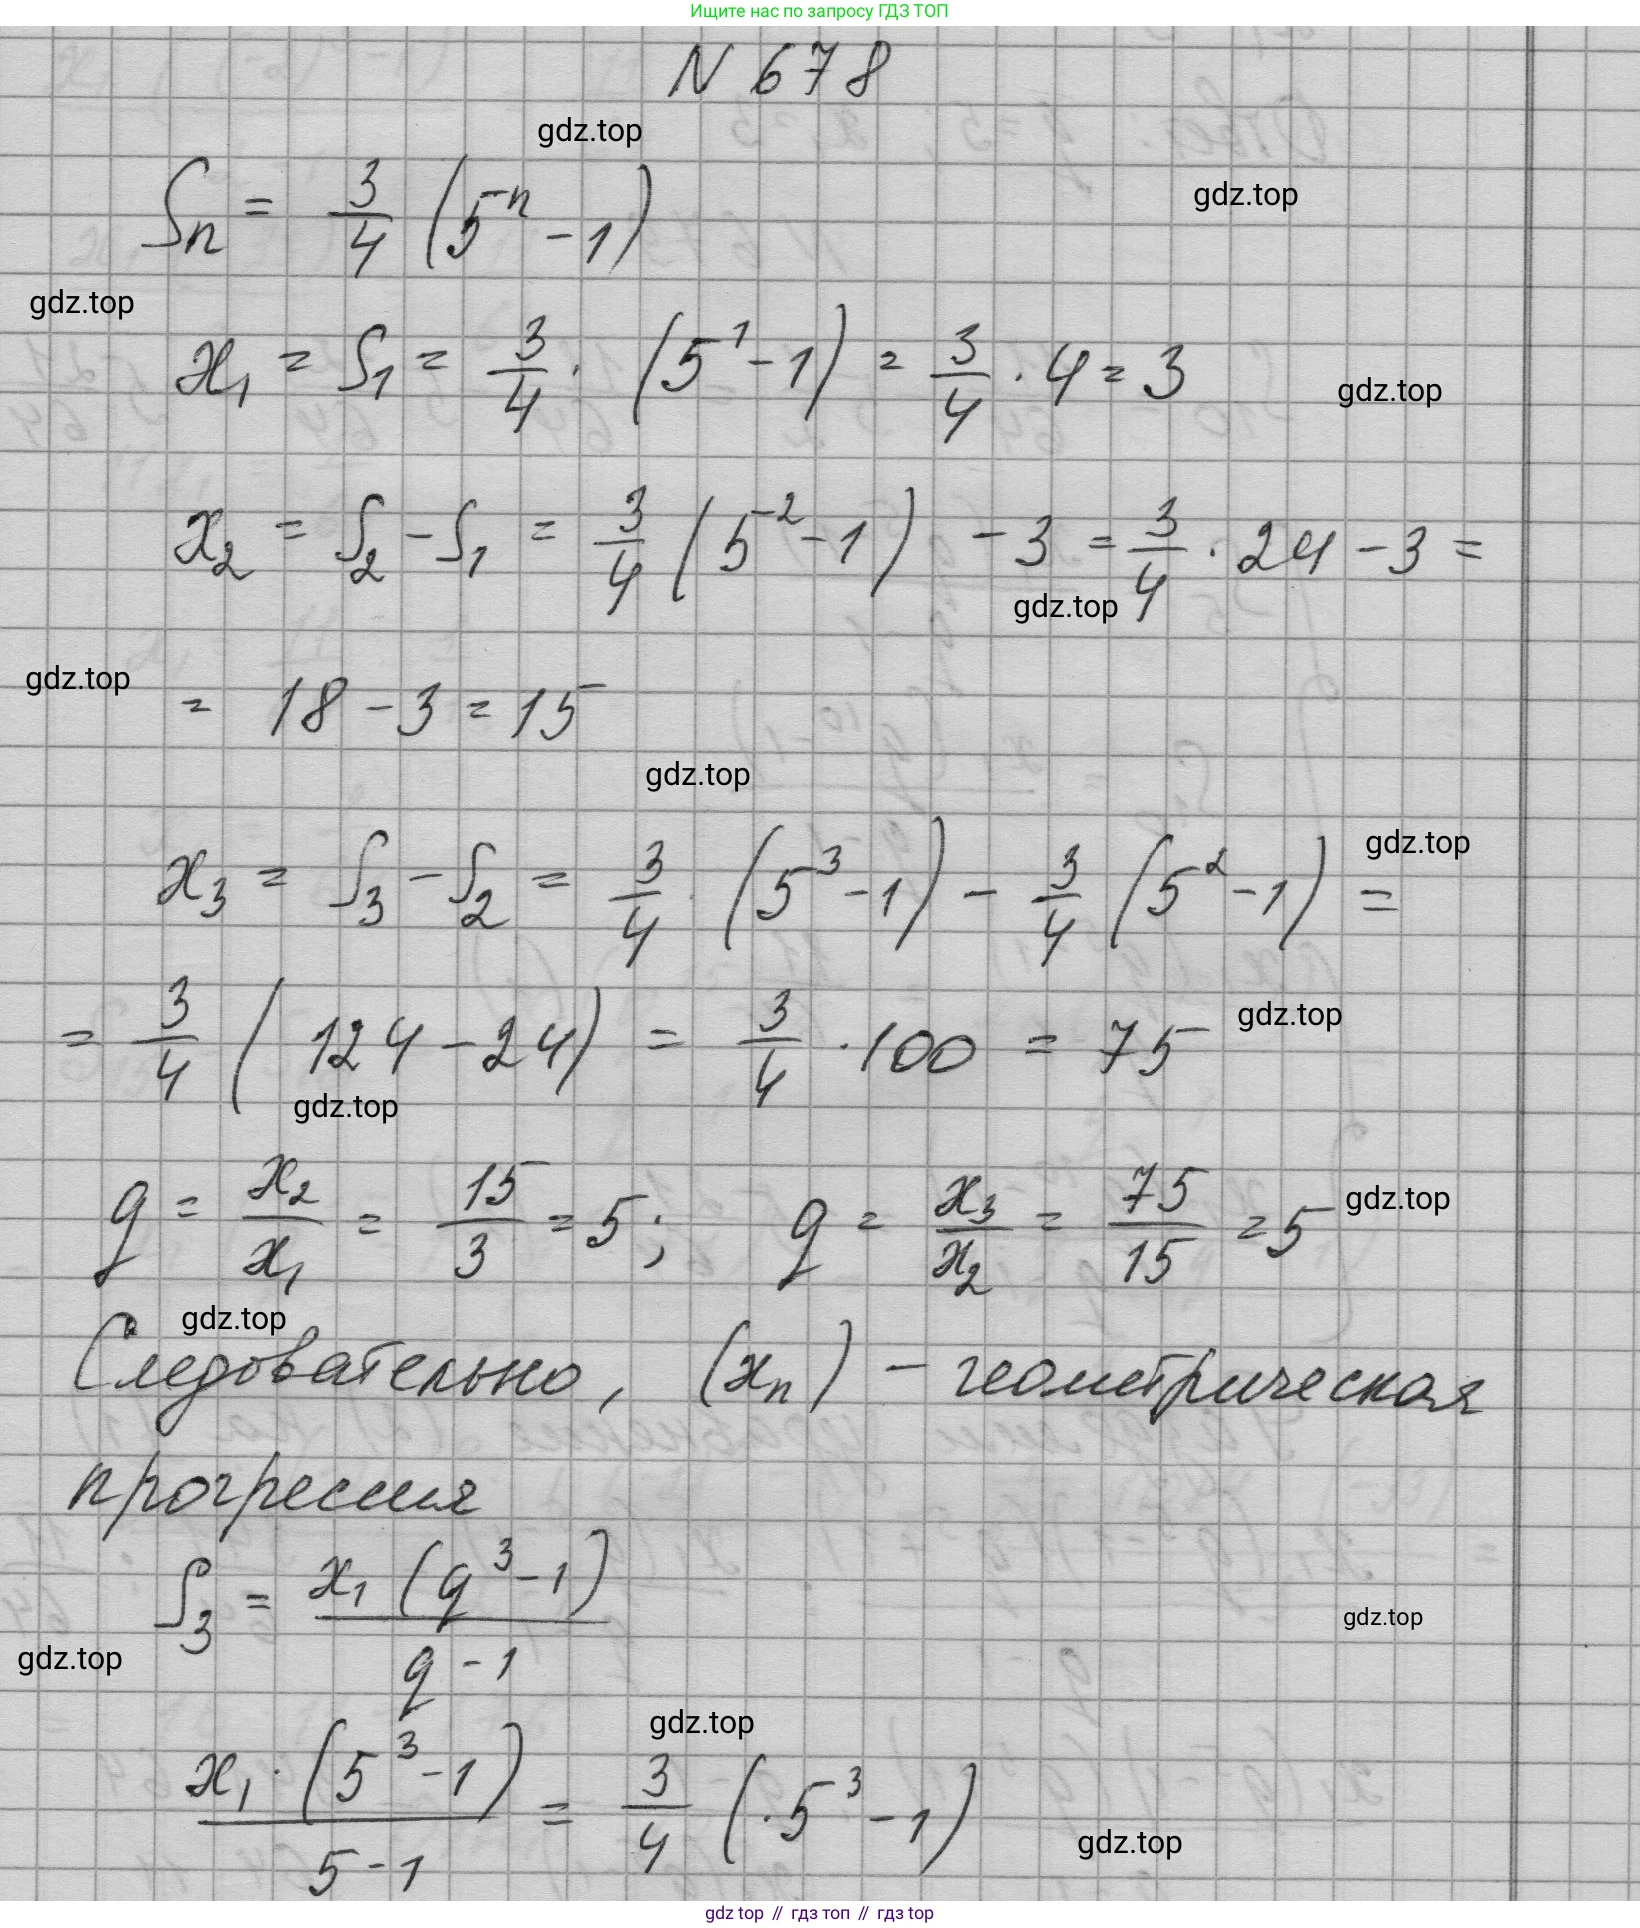 Ищите нас по запросу ГДЗ ТОП
N 678
gdz.top
Sn = 3/4 (5^n - 1)
gdz.top
gdz.top
x₁ = S₁ = 3/4 · (5^1 - 1) = 3/4 · 4 = 3
gdz.top
x₂ = S₂ - S₁ = 3/4 (5^2 - 1) - 3 = 3/4 · 24 - 3 =
gdz.top
gdz.top
= 18 - 3 = 15
gdz.top
gdz.top
x₃ = S₃ - S₂ = 3/4 · (5^3 - 1) - 3/4 (5^2 - 1) =
= 3/4 (124 - 24) = 3/4 · 100 = 75
gdz.top
gdz.top
q = x₂/x₁ = 15/3 = 5; q = x₃/x₂ = 75/15 = 5
gdz.top
gdz.top
Следовательно, (xn) - геометрическая
прогрессия
S₃ = x₁ (q^3 - 1) / q - 1
gdz.top
gdz.top
gdz.top
x₁ · (5^3 - 1) / 5 - 1 = 3/4 (· 5^3 - 1)
gdz.top
gdz top // гдз топ // гдз top